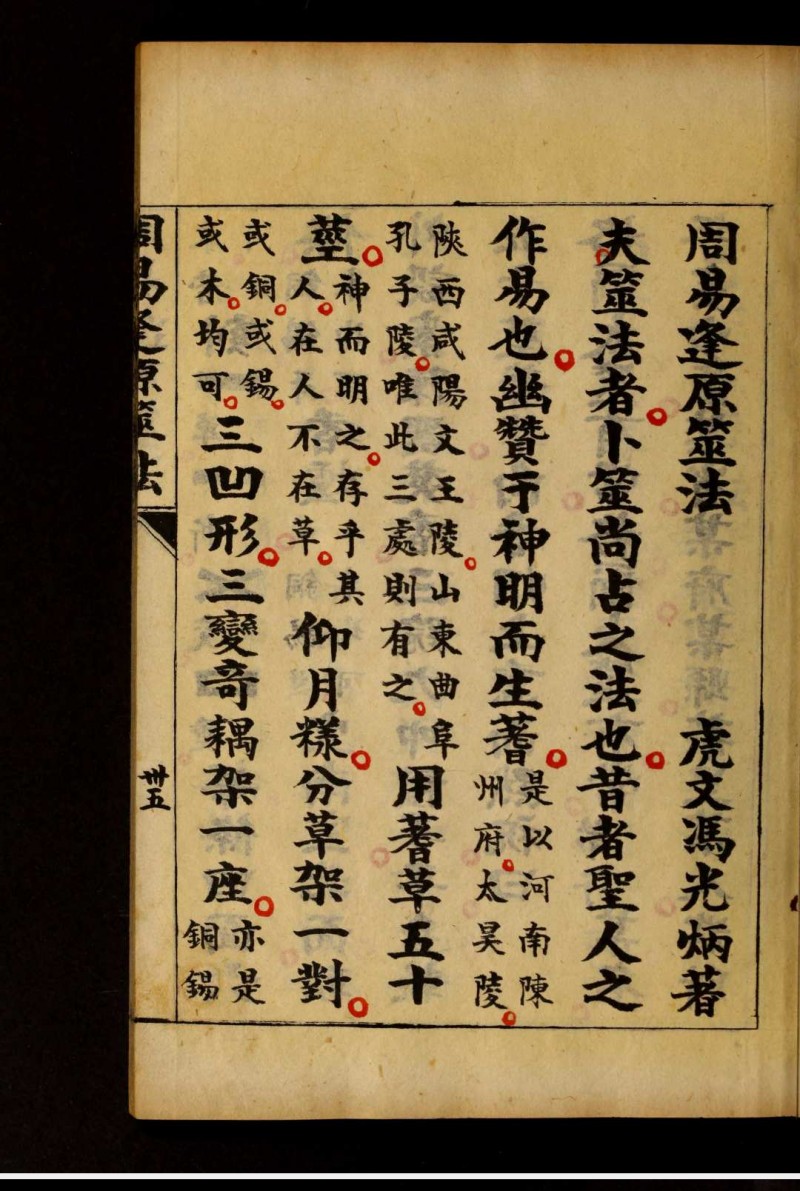 周易逢原筮法　虎文馮光炳著
夫筮法者卜筮尚占之法也昔者聖人之
作易也幽贊于神明而生蓍是以河南陳州府太昊陵
陝西咸陽文王陵山東曲阜孔子陵唯此三處則有之用蓍草五十
莖神而明之存乎其人在人不在草仰月樣分草架一對
或銅或錫或木均可三凹形三變奇耦架一座亦是銅錫
周易逢原筮法
卅五